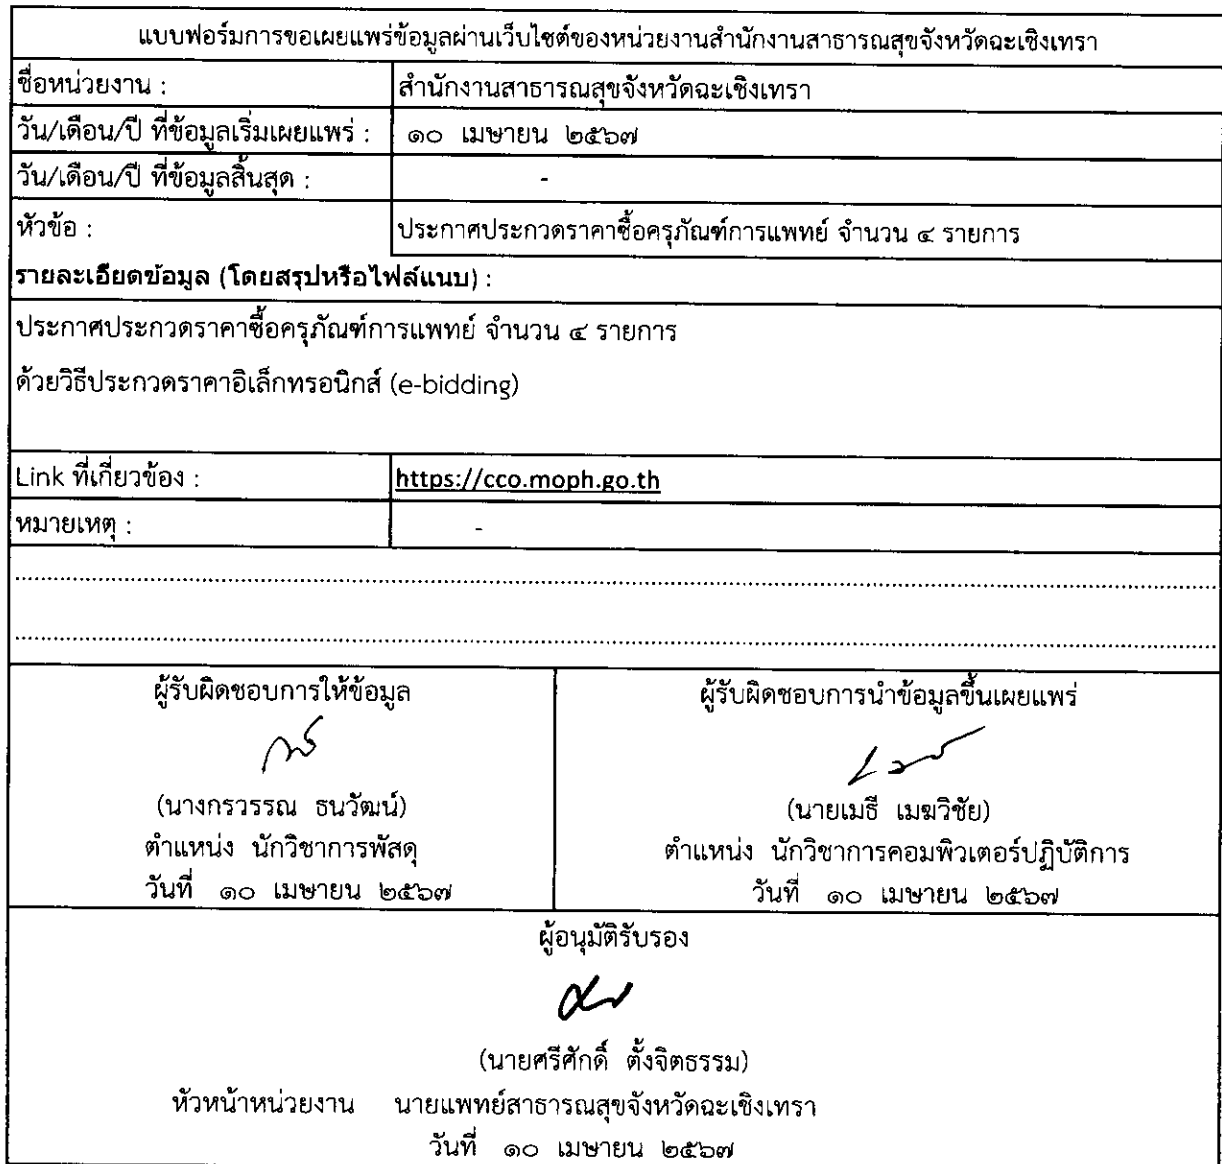 แบบฟอร์มการขอเผยแพร่ข้อมูลผ่านเว็บไซต์ของหน่วยงานสำนักงานสาธารณสุขจังหวัดฉะเชิงเทรา
ชื่อหน่วยงาน : สำนักงานสาธารณสุขจังหวัดฉะเชิงเทรา
วัน/เดือน/ปี ที่ข้อมูลเริ่มเผยแพร่ : ๑๐ เมษายน ๒๕๖๗
วัน/เดือน/ปี ที่ข้อมูลสิ้นสุด : -
หัวข้อ : ประกาศประกวดราคาซื้อครุภัณฑ์การแพทย์ จำนวน ๔ รายการ
รายละเอียดข้อมูล (โดยสรุปหรือไฟล์แนบ) :
ประกาศประกวดราคาซื้อครุภัณฑ์การแพทย์ จำนวน ๔ รายการ
ด้วยวิธีประกวดราคาอิเล็กทรอนิกส์ (e-bidding)
Link ที่เกี่ยวข้อง : https://cco.moph.go.th
หมายเหตุ : -
ผู้รับผิดชอบการให้ข้อมูล
(นางกรวรรณ ธนวัฒน์)
ตำแหน่ง นักวิชาการพัสดุ
วันที่ ๑๐ เมษายน ๒๕๖๗
ผู้รับผิดชอบการนำข้อมูลขึ้นเผยแพร่
(นายเมธี เมฆวิชัย)
ตำแหน่ง นักวิชาการคอมพิวเตอร์ปฏิบัติการ
วันที่ ๑๐ เมษายน ๒๕๖๗
ผู้อนุมัติรับรอง
(นายศรีศักดิ์ ตั้งจิตธรรม)
หัวหน้าหน่วยงาน นายแพทย์สาธารณสุขจังหวัดฉะเชิงเทรา
วันที่ ๑๐ เมษายน ๒๕๖๗